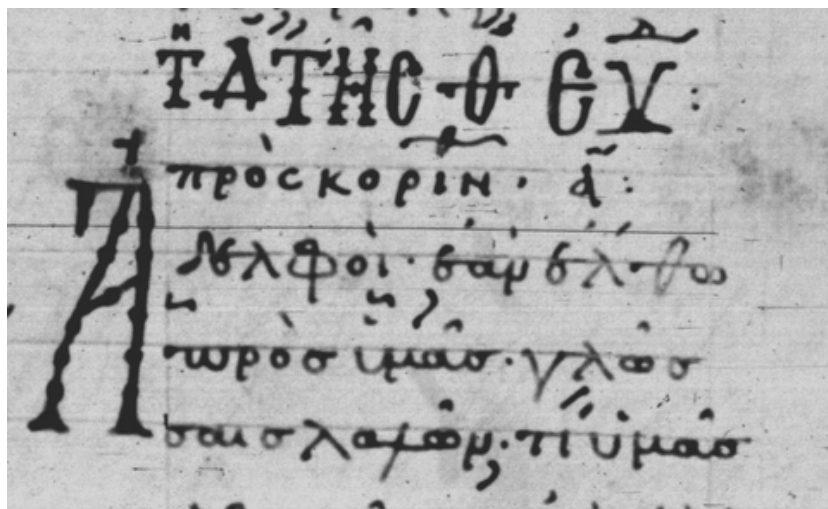 ΤΑ ΤΗC Θ ЄΥ:
πρὸς κοριν. α:
Ἀδελφοί· ἐὰν ἔλθω
πρὸσ ὑμᾶσ· γλῶσ
σαισ λαλῶν· τί ὑμᾶσ